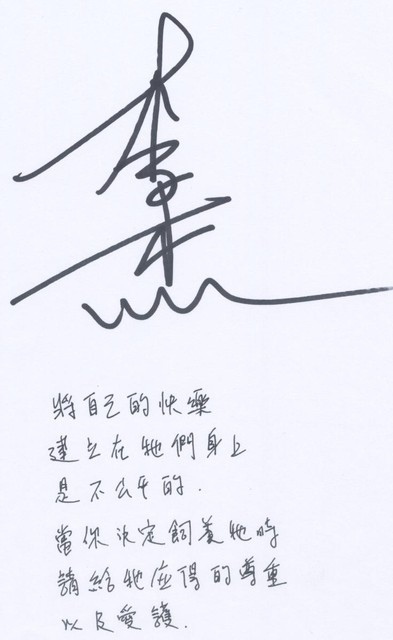 將自己的快樂
建立在牠們身上
是不公平的.
當你決定飼養牠時
請給牠應得的尊重
以及愛護.